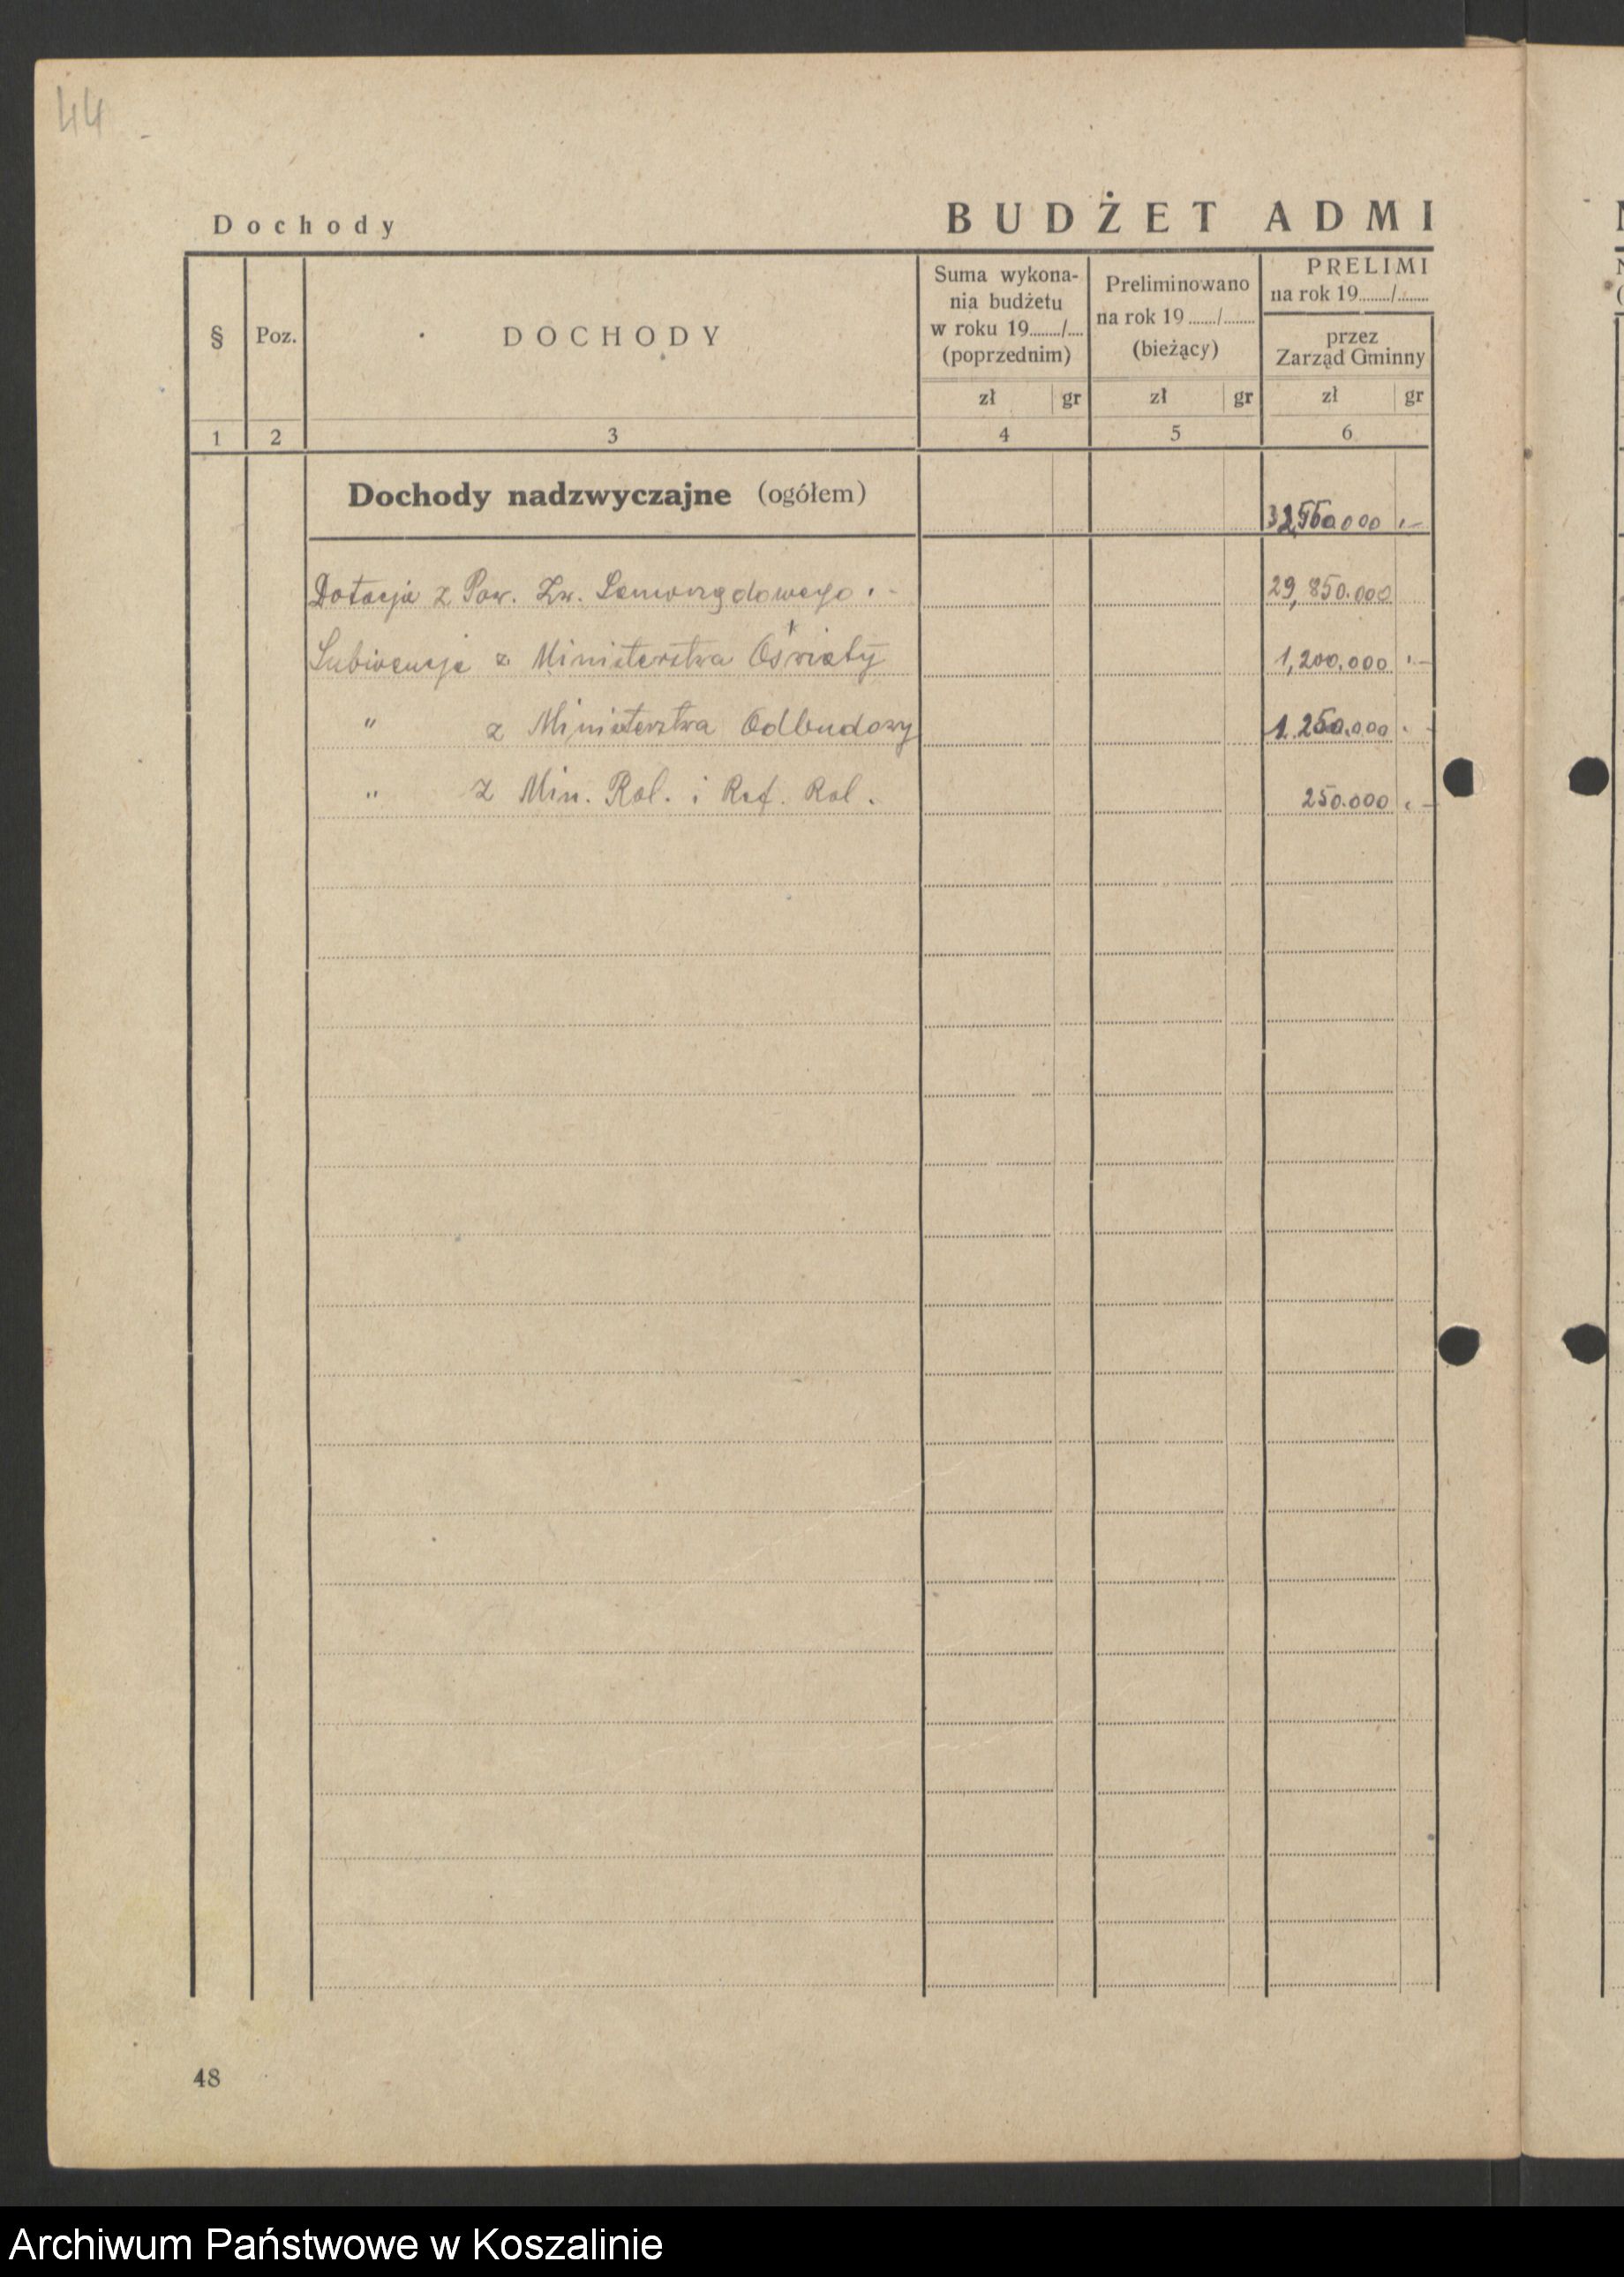 44
Dochody
BUDŻET ADMI
§
Poz.
DOCHODY
Suma wykona-
nia budżetu
w roku 19......../....
(poprzednim)
Preliminowano
na rok 19......./........
(bieżący)
PRELIMI
na rok 19......../........
przez
Zarząd Gminny
zł gr zł gr zł gr
1 2 3 4 5 6
Dochody nadzwyczajne (ogółem)
Dotacja z Pow. Zw. Samorządowego . - 29,850.000
Subwencje z Ministerstwa Oświaty 1,200,000 . -
" z Ministerstwa Odbudowy 1.250.000 . -
" z Min. Rol. i Ref. Rol. 250.000 . -
48
Archiwum Państwowe w Koszalinie